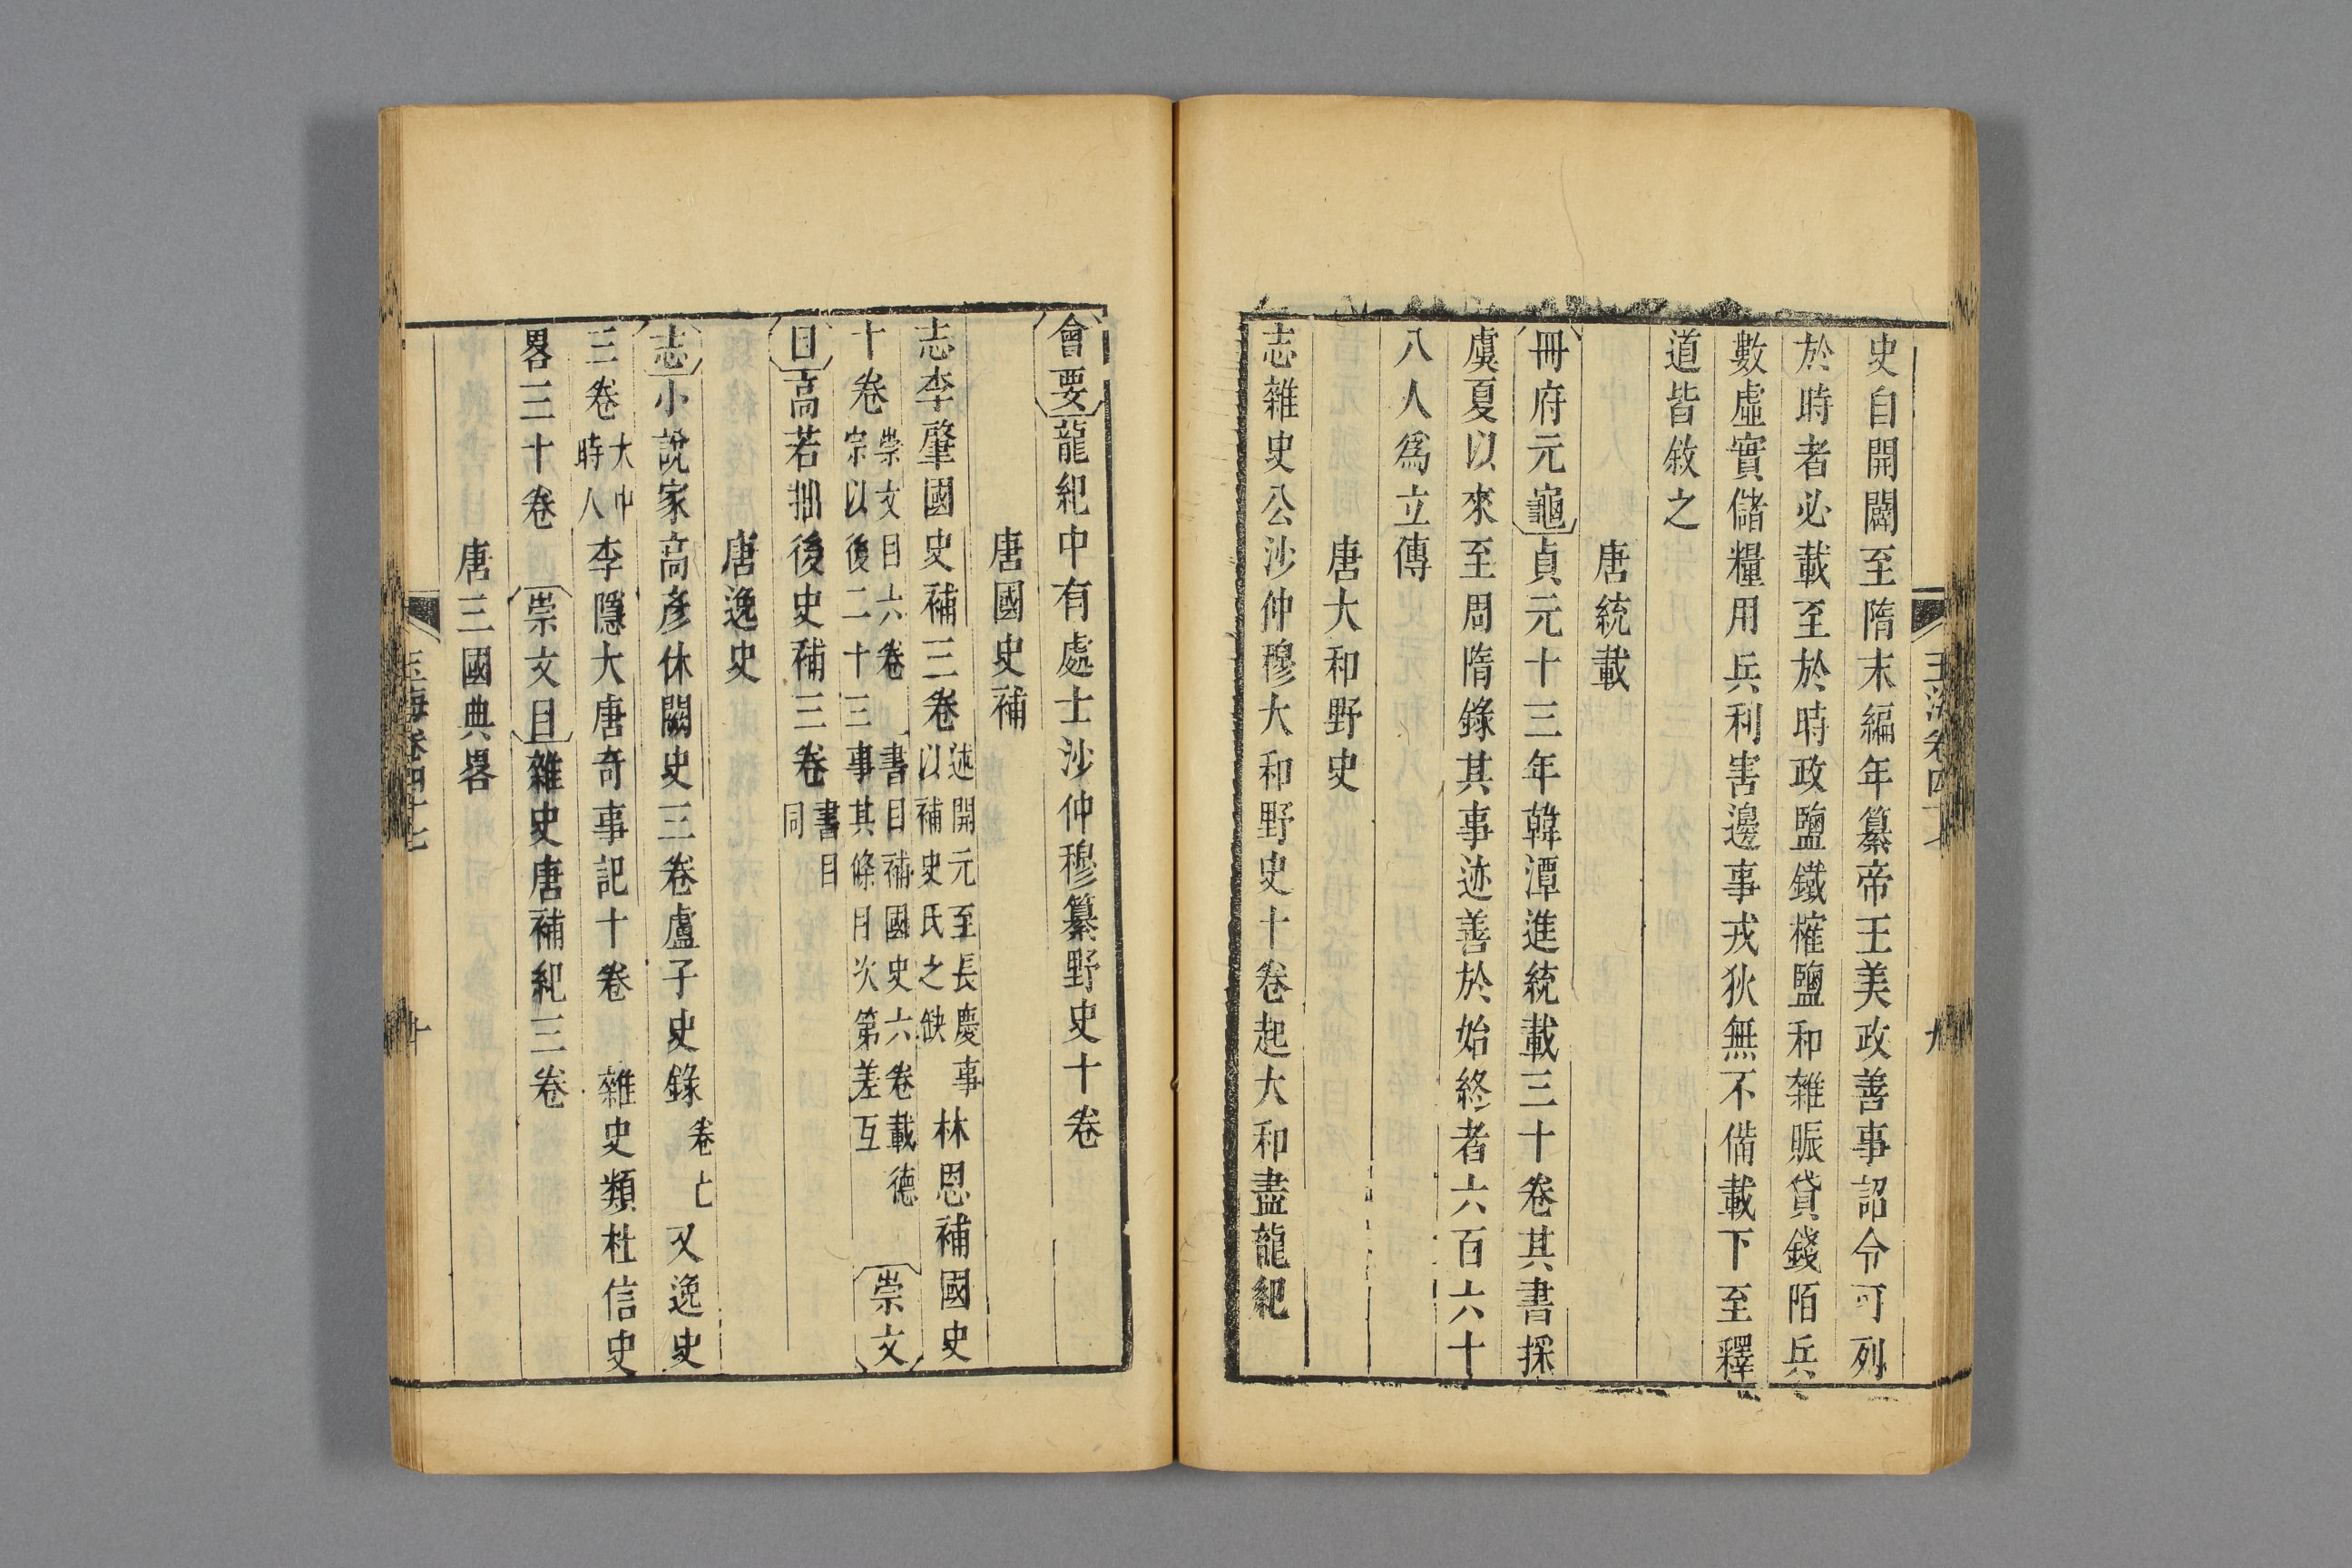 史自開闢至隋末編年纂帝王美政善事詔令可列
於時者必載至於時政鹽鐵榷鹽和雜賑貸錢陌兵
數虛實儲糧用兵利害邊事戎狄無不備載下至釋
道皆敘之
唐統載
冊府元龜貞元十三年韓潭進統載三十卷其書採
虞夏以來至周隋錄其事迹善於始終者六百六十
八人爲立傳
唐大和野史
志雜史公沙仲穆大和野史十卷起大和盡龍紀
會要龍紀中有處士沙仲穆纂野史十卷
唐國史補
志李肇國史補三卷述開元至長慶事以補史氏之缺林恩補國史
十卷崇文目六卷書目補國史六卷載德宗以後二十三事其條目次第差互崇文
目高若拙後史補三卷書目同
唐逸史
志小說家高彥休闕史三卷盧子史錄卷亡又逸史
三卷大中時人李隱大唐奇事記十卷雜史類杜信史
畧三十卷崇文目雜史唐補紀三卷
唐三國典畧
玉海卷四十七
十